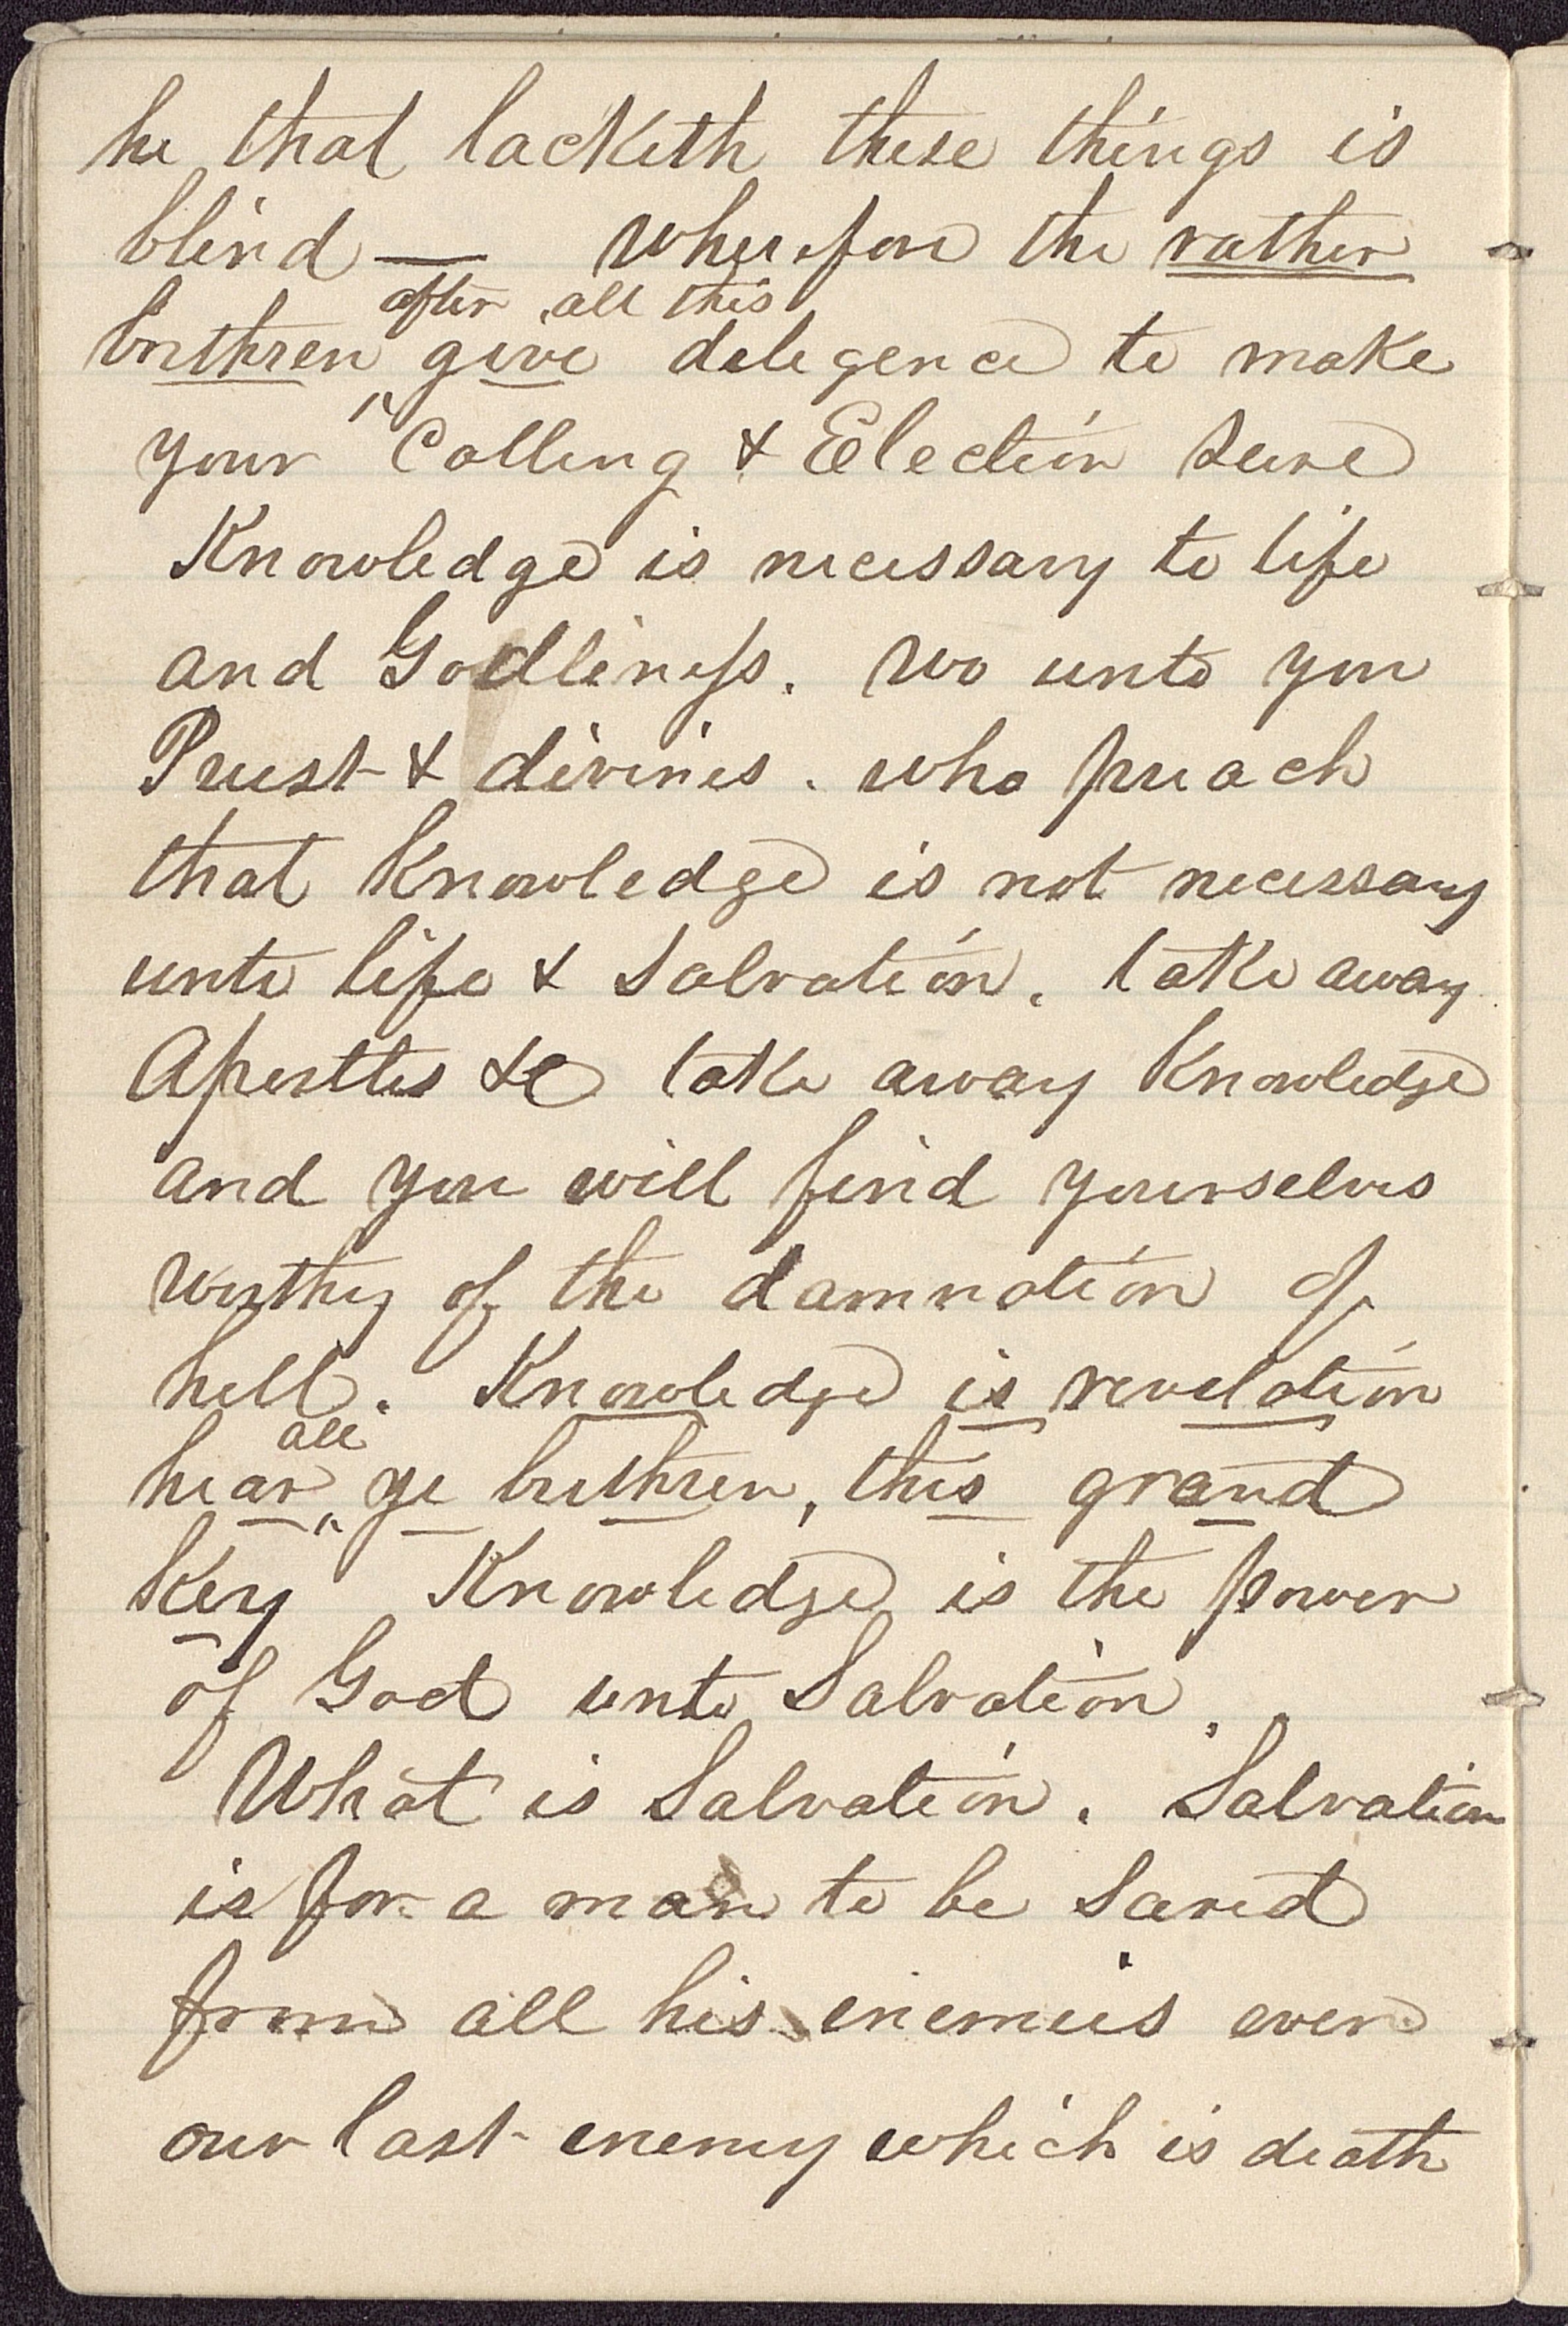 he that lacketh these things is
blind — wherefore the rather
after all this
brethren give delegence to make
your Calling & Election Sure
Knowledge is necessary to life
and Godliness. wo unto you
Priest & divines. who preach
that knowledge is not necessary
unto life & Salvation. take away
Apostles &c take away knowledge
and you will find yourselves
worthy of the damnation of
hell. Knowledge is revelation
all
hear ye brethren, this grand
key Knowledge is the power
of God unto Salvation.
What is Salvation. Salvation
is for a man to be Saved
from all his enemies even
our last enemy which is death